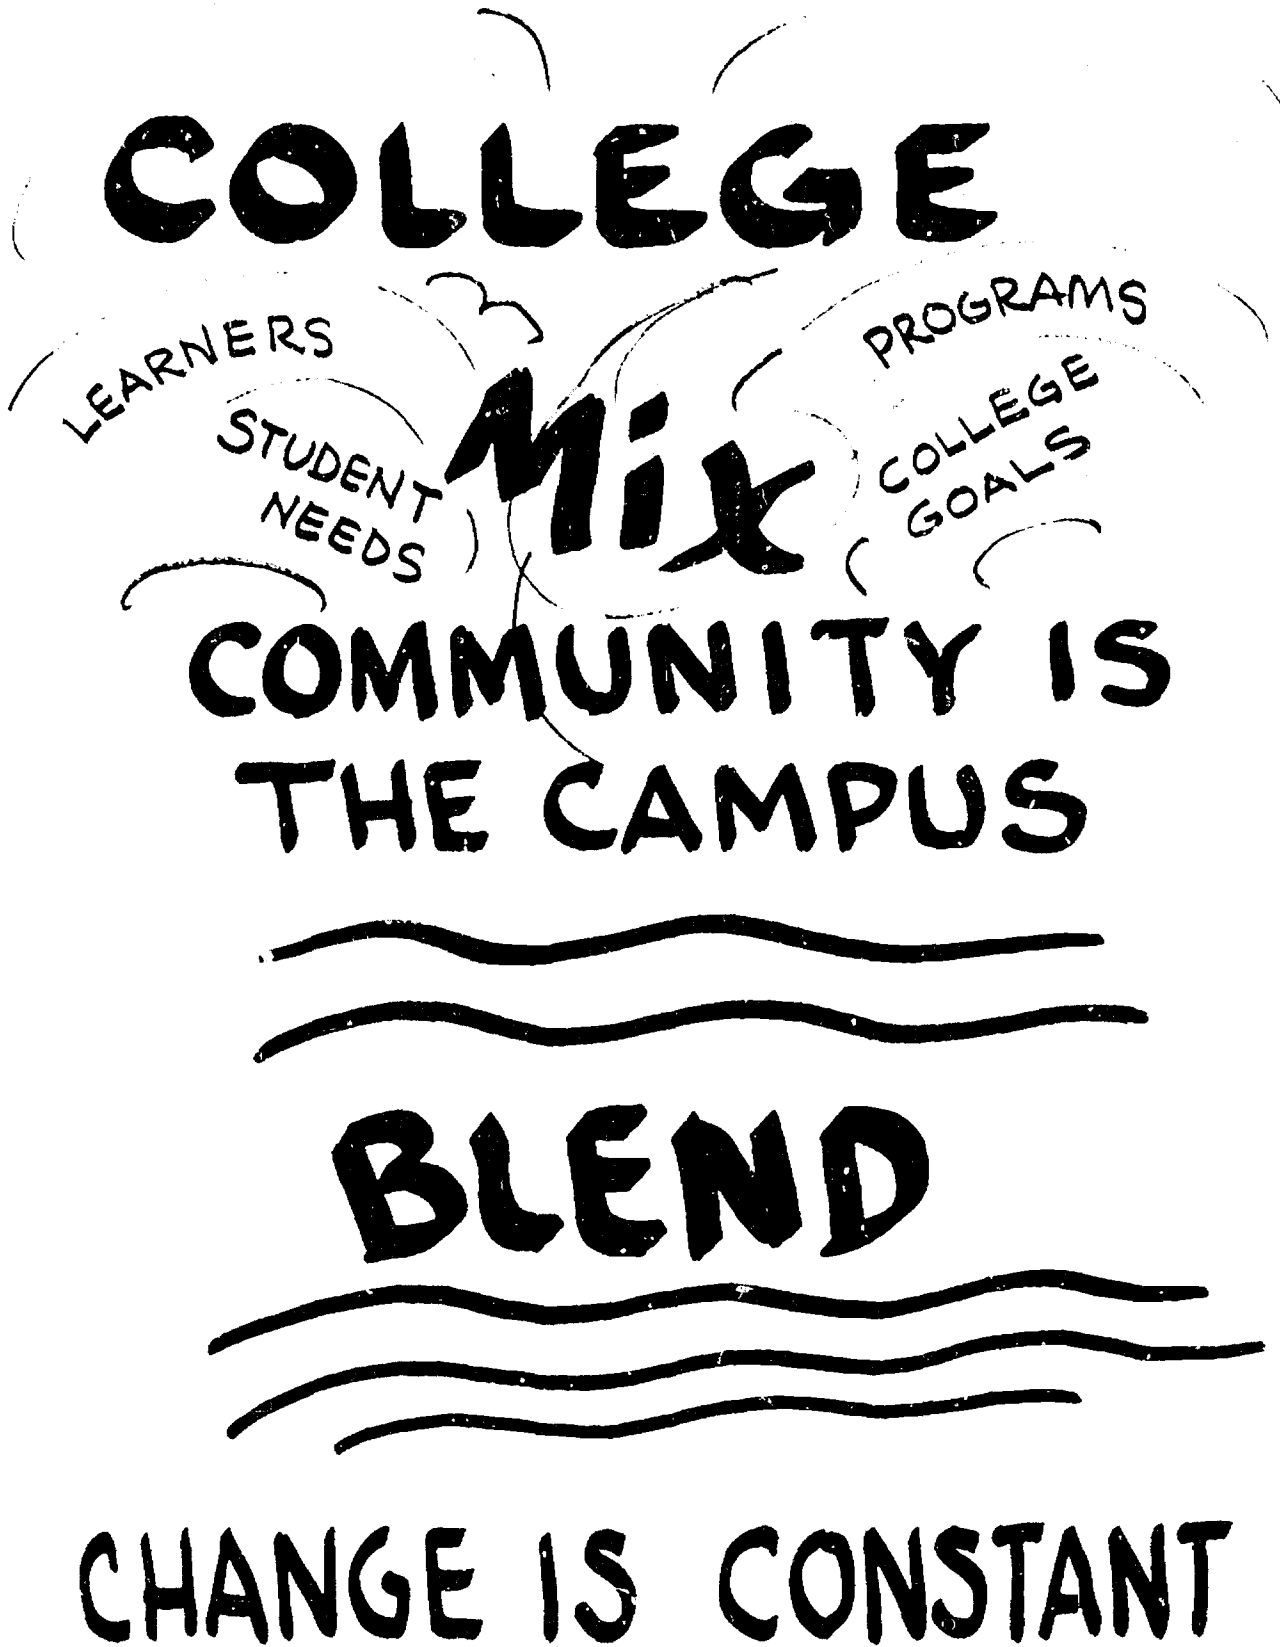 COLLEGE
LEARNERS
STUDENT
NEEDS
Mix
PROGRAMS
COLLEGE
GOALS
COMMUNITY IS
THE CAMPUS
BLEND
CHANGE IS CONSTANT